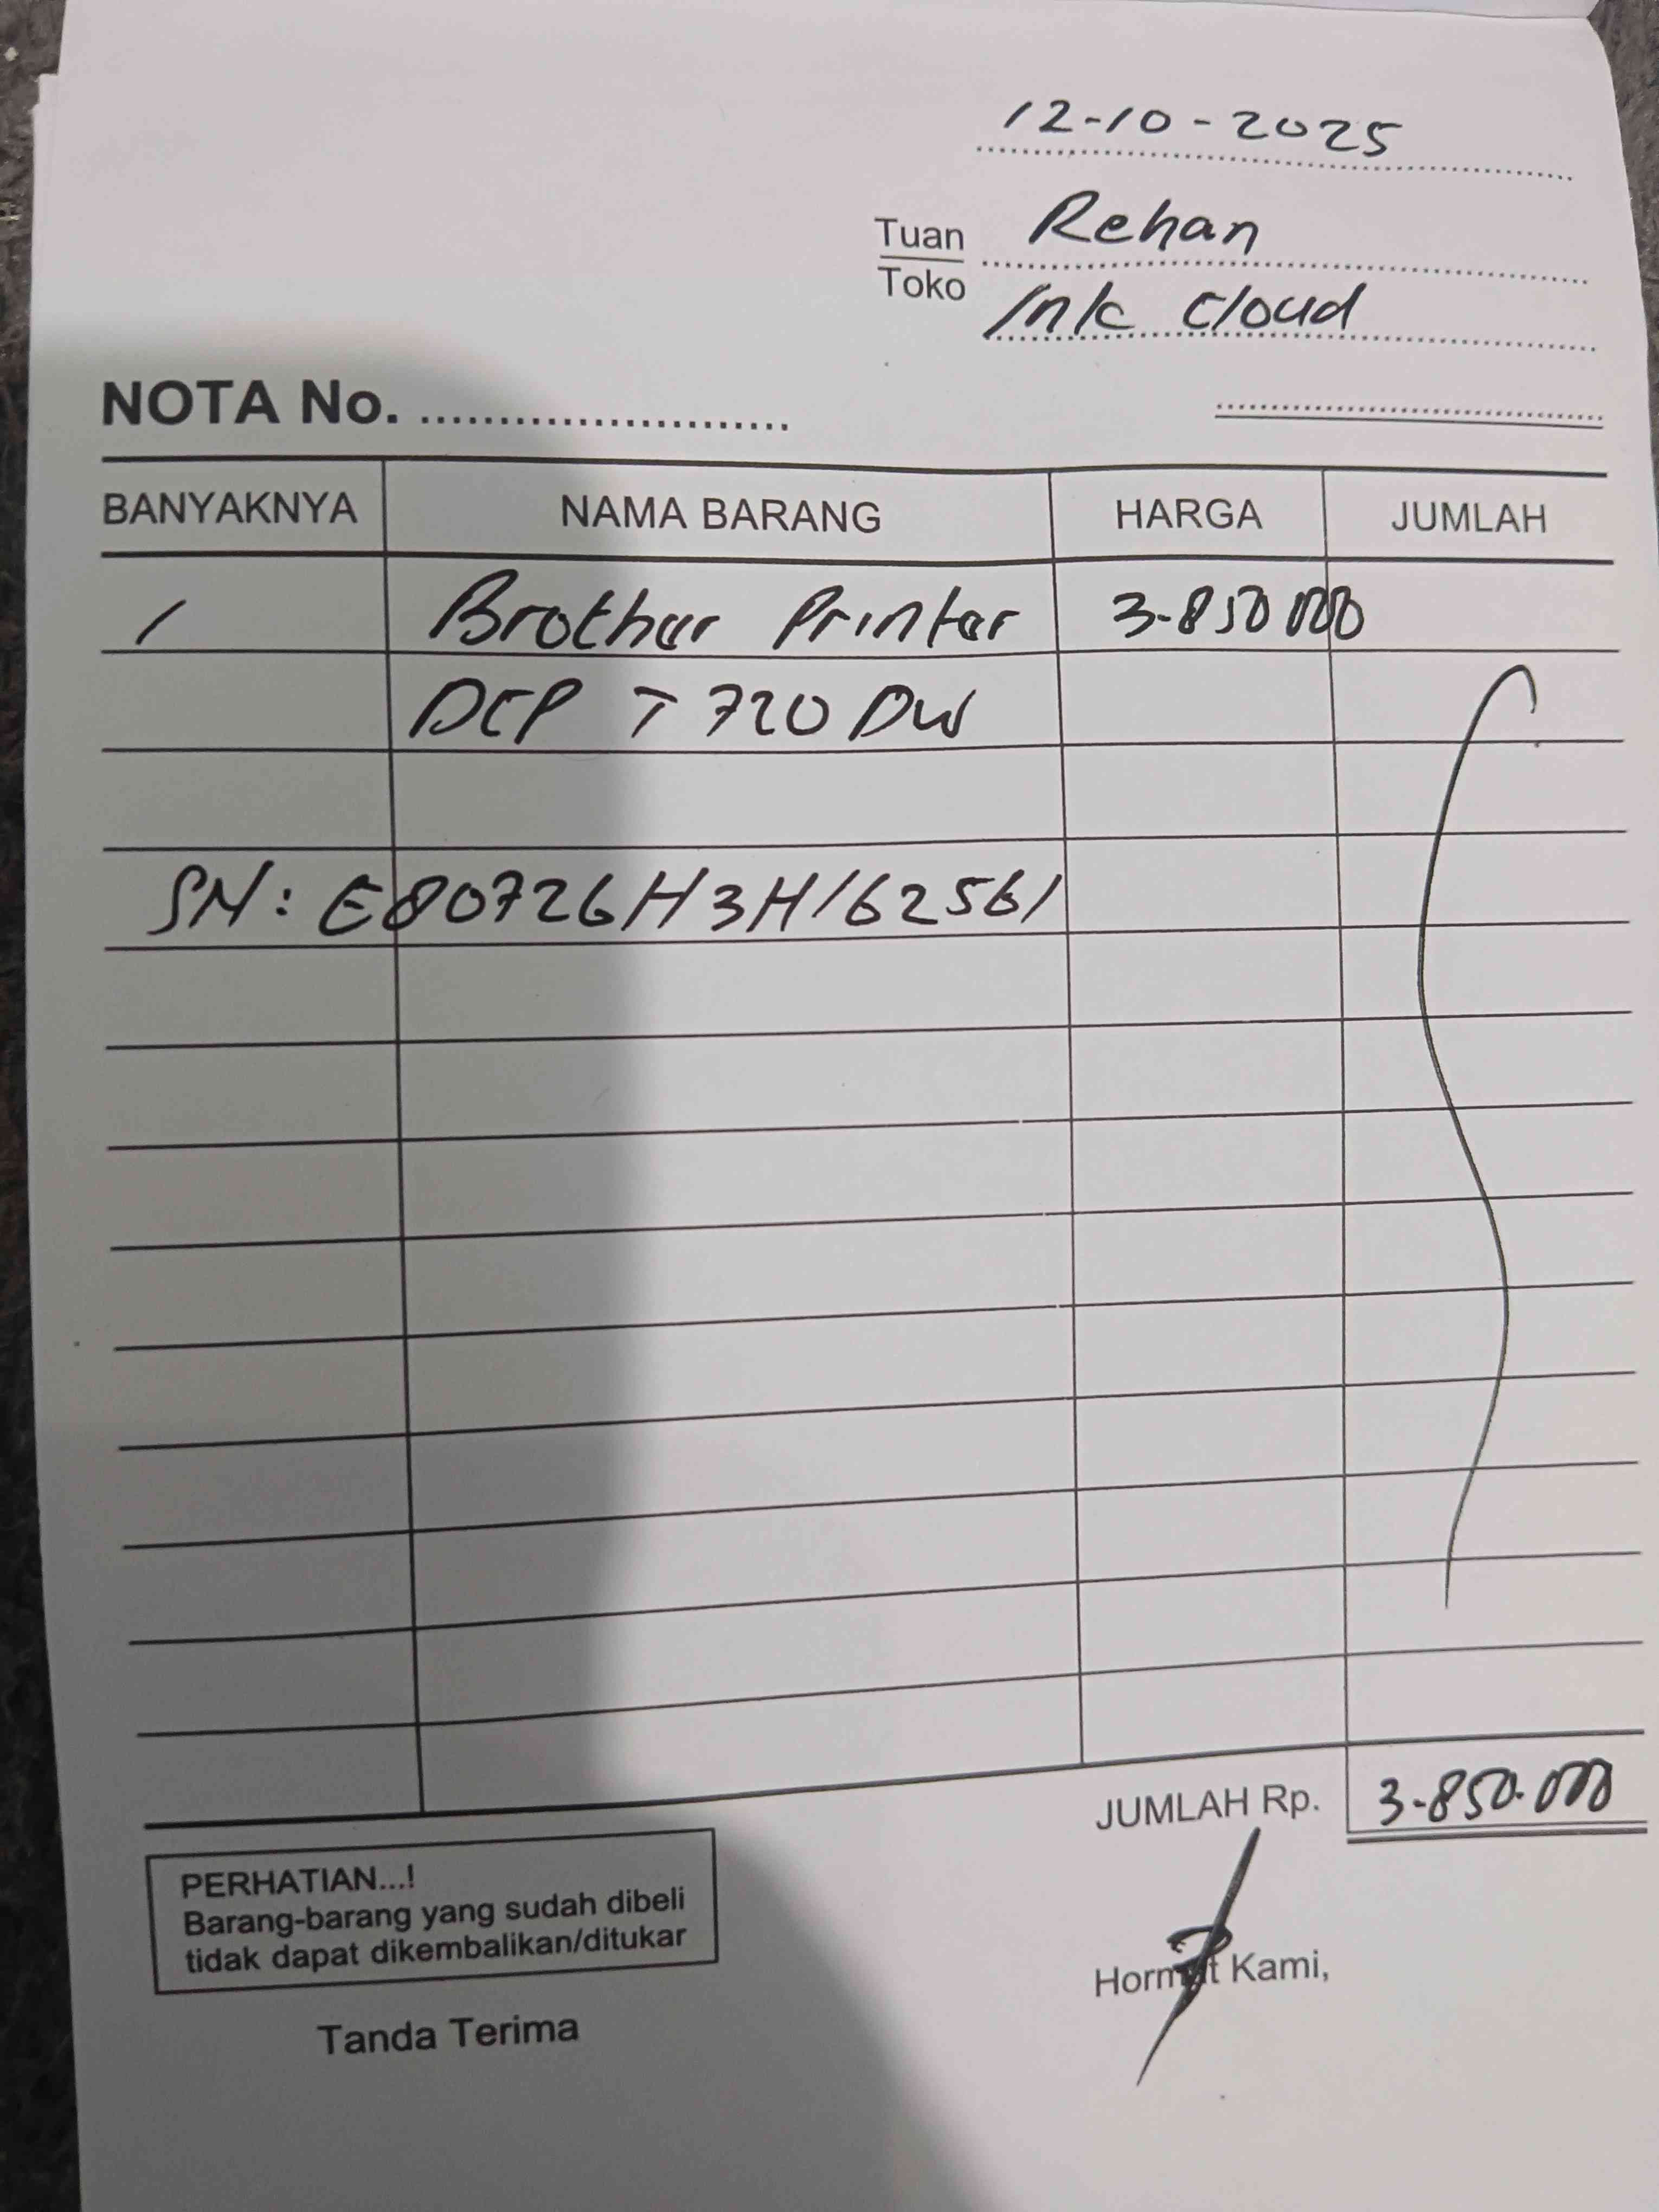 12-10-2025
Tuan Rehan
Toko Ink Cloud
NOTA No. ........................
BANYAKNYA NAMA BARANG HARGA JUMLAH
1 Brother Printer 3.850 000
DCP T 720 DW
SN: E80726H3H162561
JUMLAH Rp. 3.850.000
PERHATIAN...!
Barang-barang yang sudah dibeli
tidak dapat dikembalikan/ditukar
Hormat Kami,
Tanda Terima